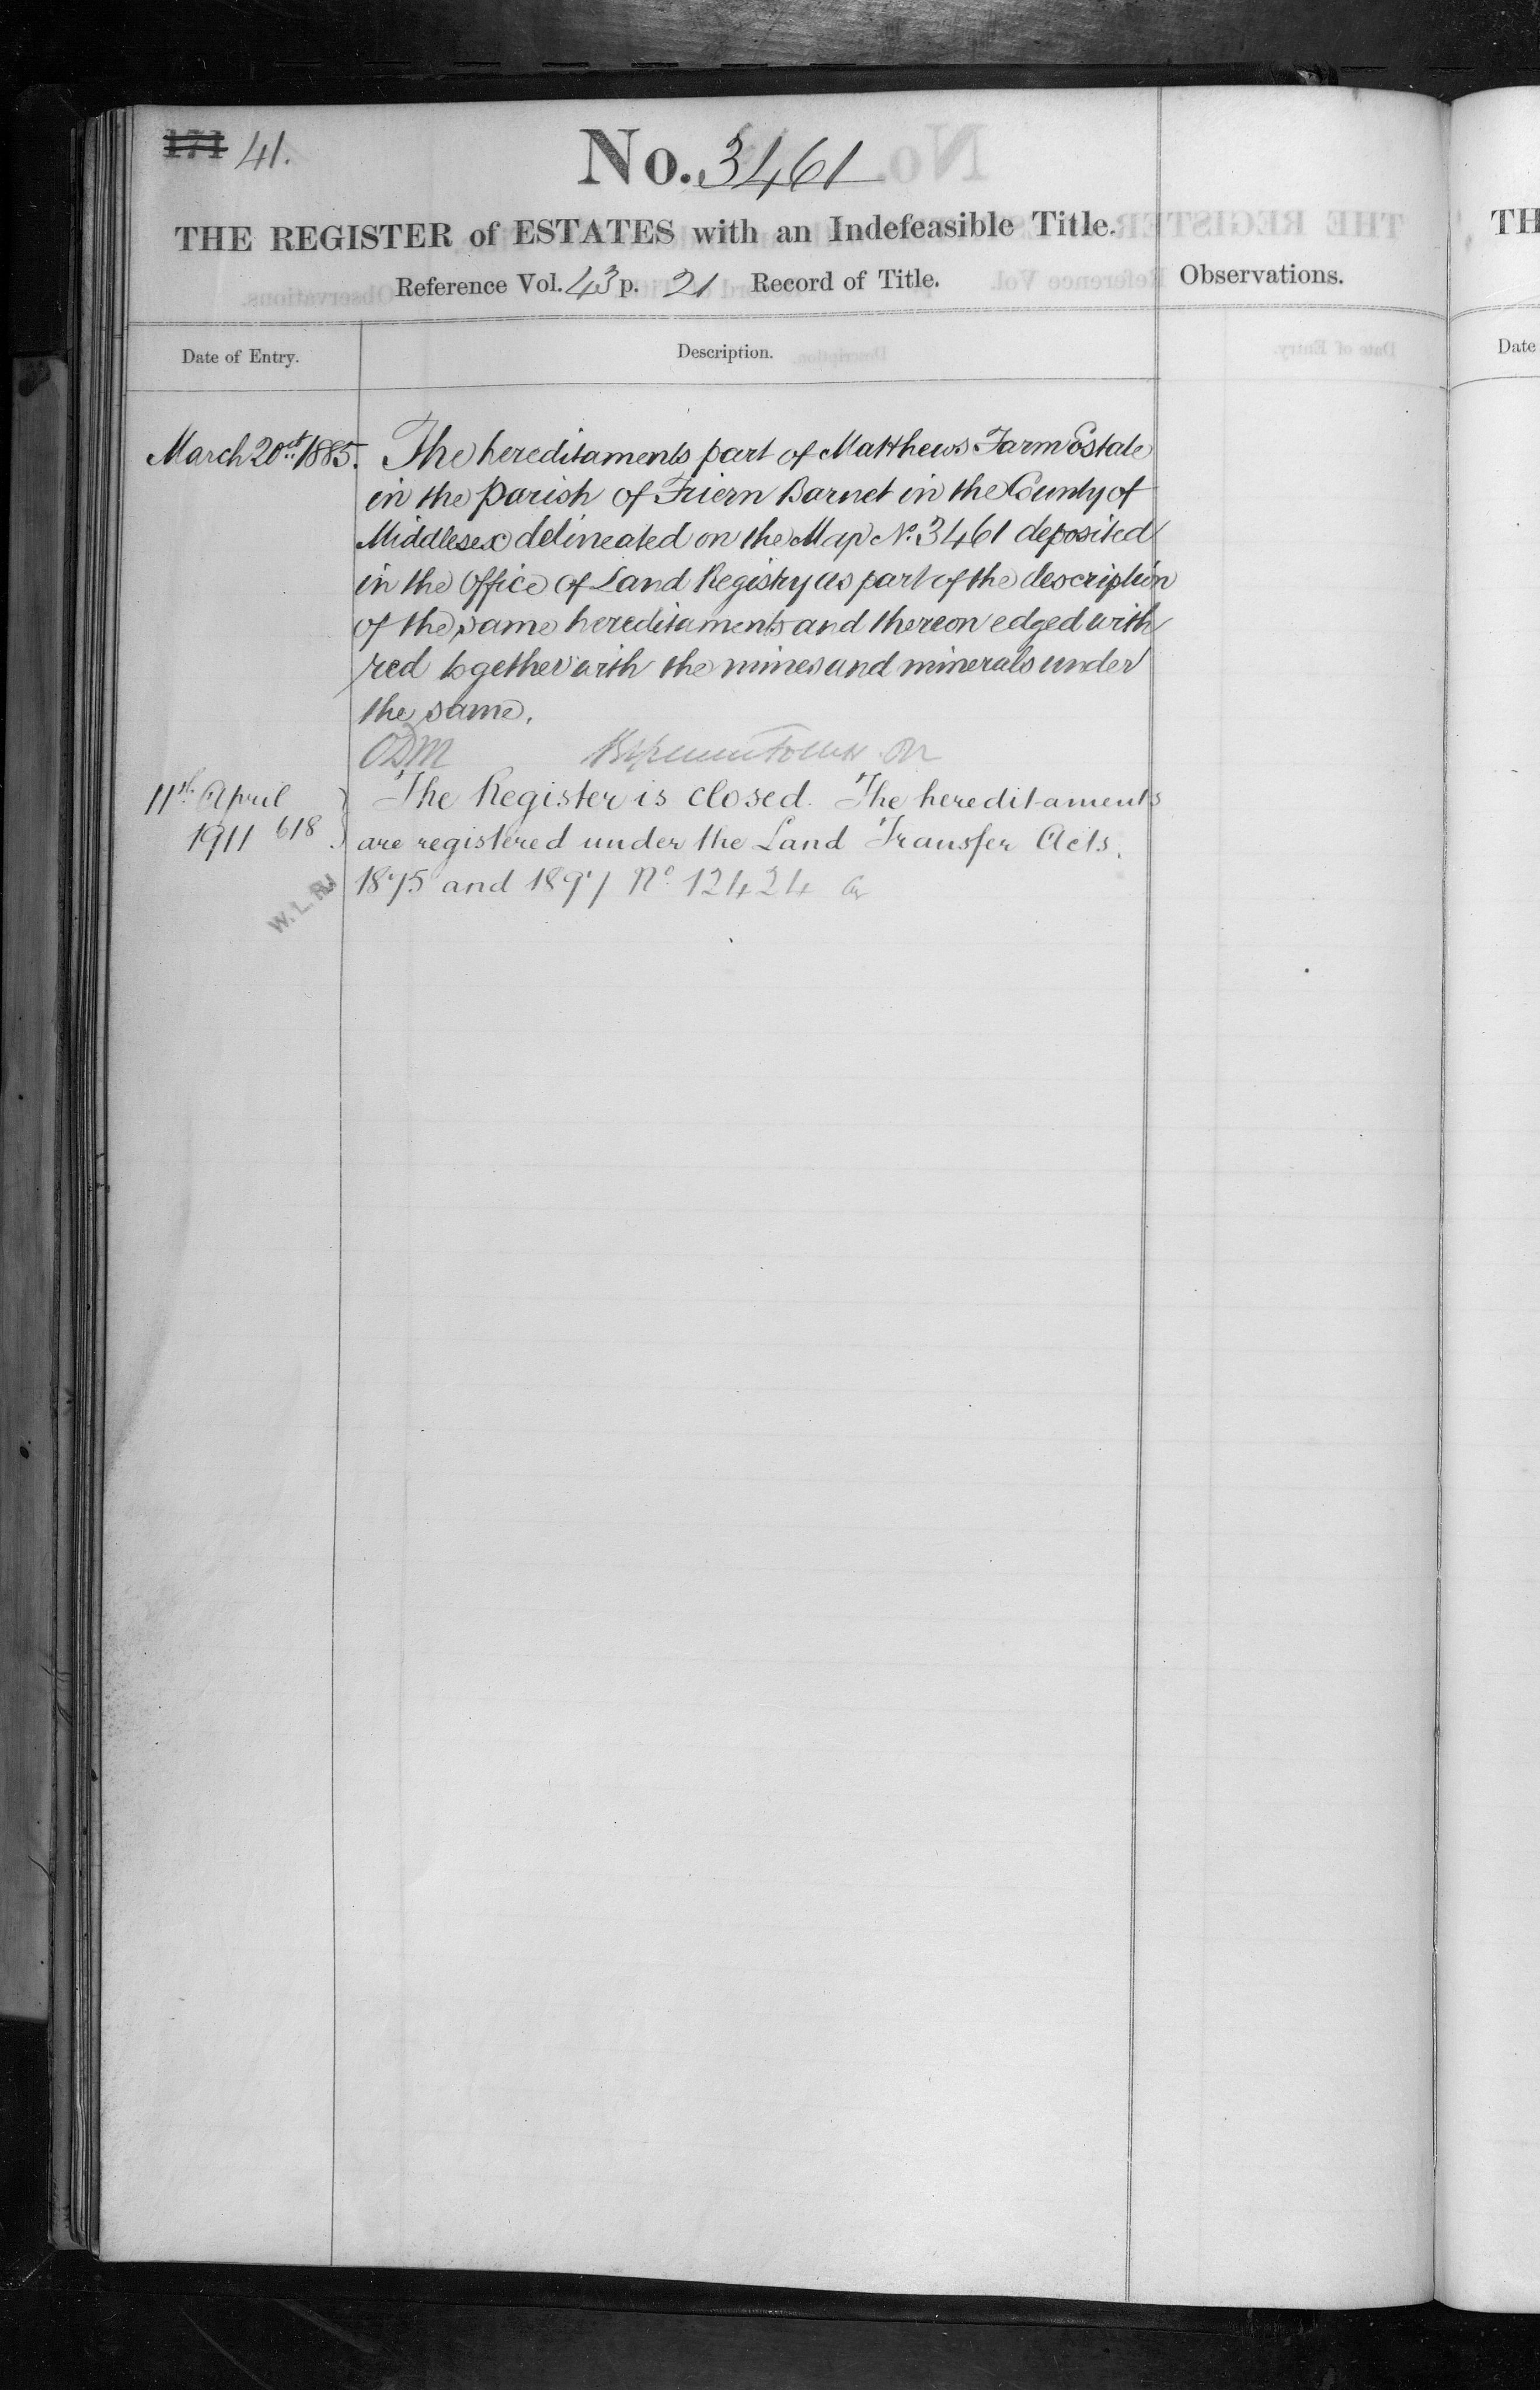 171 41.
No. 3461
THE REGISTER of ESTATES with an Indefeasible Title.
Reference Vol. 43 p. 21 Record of Title.
Observations.
Date of Entry.
Description.
March 20th 1885.
The hereditaments part of Matthews Farm Estate
in the parish of Friern Barnet in the County of
Middlesex delineated on the Map No. 3461 deposited
in the office of Land Registry as part of the description
of the same hereditaments and thereon edged with
red together with the mines and minerals under
the same.
ODM
11th April
1911 618
The Register is closed. The hereditaments
are registered under the Land Transfer Acts,
1875 and 1897 No 12424
W.L.R.
TH
Date